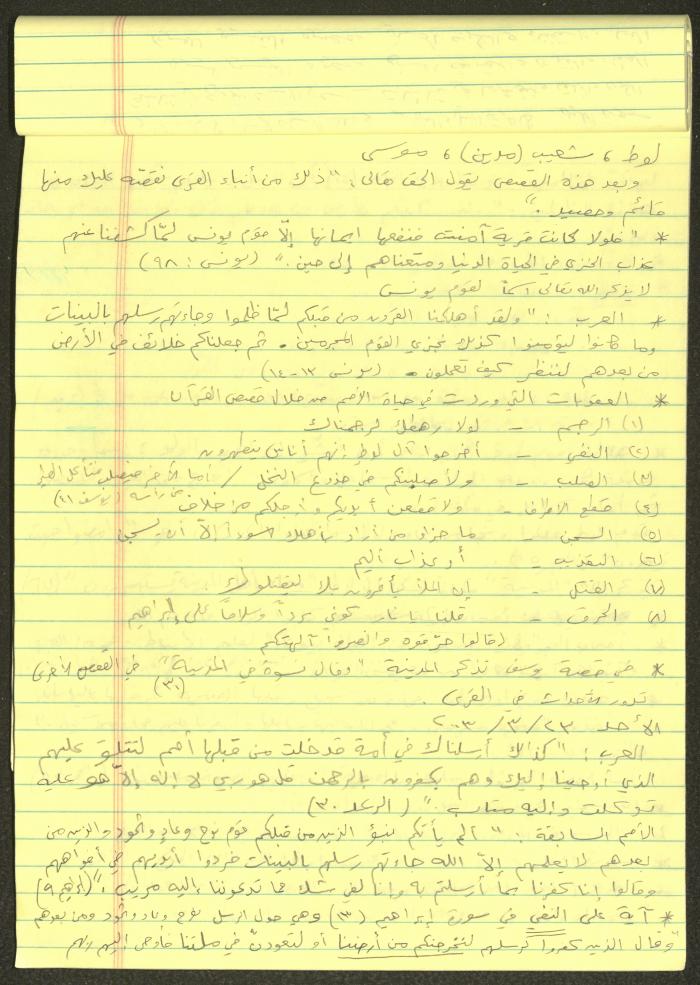 لوط ، شعيب (مدين) ، موسى
وبعد هذه القصص يقول الحق تعالى : " ذلك من أنباء القرى نقصه عليك منها
قائم وحصيد . "
* " فلولا كانت قرية آمنت فنفعها ايمانها إلّا قوم يونس لمّا كشفنا عنهم
عذاب الخزي في الحياة الدنيا ومتعناهم إلى حين . " (يونس : ٩٨)
لا يذكر الله تعالى اسماً لقوم يونس
* العرب : " ولقد أهلكنا القرون من قبلكم لمّا ظلموا وجاءتهم رسلهم بالبينات
وما كانوا ليؤمنوا كذلك نجزي القوم المجرمين . ثم جعلناكم خلائف في الأرض
من بعدهم لننظر كيف تعملون . (يونس ١٣-١٤)
* العقوبات التي وردت في حياة الأمم من خلال قصص القرآن
(١) الرجم - لولا رهطك لرجمناك
(٢) النفي - أخرجوا آل لوط إنهم أناس يتطهرون
(٣) الصلب - ولأصلبنكم في جذوع النخل / أما الآخر فيصلب فتأكل الطير
من رأسه (يوسف ٤١)
(٤) قطع الأطراف - ولأقطعن أيديكم وأرجلكم من خلاف
(٥) السجن - ما جزاء من أراد بأهلك سوءاً إلّا أن يسجن
(٦) التعذيب - أو عذاب أليم
(٧) القتل - إن الملأ يأتمرون بك ليقتلوك
(٨) الحرق - قلنا يا نار كوني برداً وسلاماً على إبراهيم
(قالوا حرّقوه وانصروا آلهتكم
* في قصة يوسف تذكر المدينة " وقال نسوة في المدينة " في القصص الأخرى
(٣٠)
تدور الأحداث في القرى .
الأحد ٢٣/٣/٢٠٠٣
العرب : " كذلك أرسلناك في أمة قد خلت من قبلها أمم لتتلو عليهم
الذي أوحينا إليك وهم يكفرون بالرحمن قل هو ربي لا إله إلّا هو عليه
توكلت وإليه متاب . " (الرعد ٣٠)
الأمم السابقة : " ألم يأتكم نبؤ الذين من قبلكم قوم نوح وعاد وثمود والذين من
بعدهم لا يعلمهم إلّا الله جاءتهم رسلهم بالبينات فردوا أيديهم في أفواههم
وقالوا إنا كفرنا بما أرسلتم به وإنا لفي شك مما تدعوننا إليه مريب . " (إبراهيم ٩)
* آية على النفي في سورة إبراهيم (١٣) وهي حول الرسل نوح وعاد وثمود ومن بعدهم
" وقال الذين كفروا لرسلهم لنخرجنكم من أرضنا أو لتعودنّ في ملتنا فأوحى إليهم ربهم